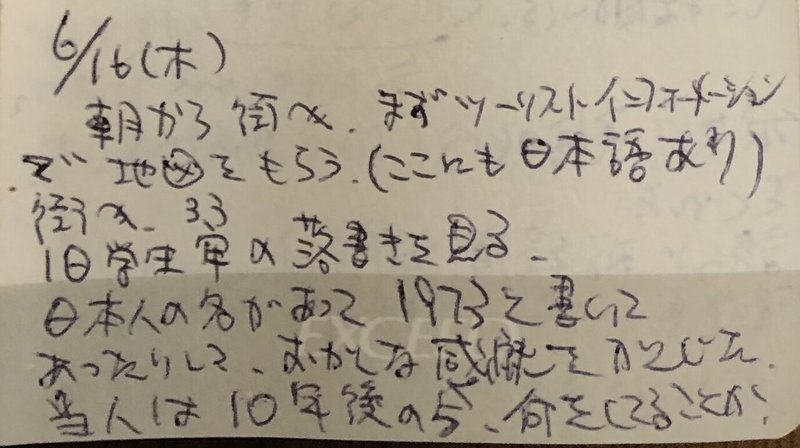 6/16(木)
朝から街へ. まずツーリストインフォメーション
で地図をもらう.(ここにも日本語あり)
街へ. 33
旧学生牢の落書きを見る.
日本人の名があって1973と書いて
あったりして、おかしな感慨をかんじた.
当人は10年後の、何をしてることか.